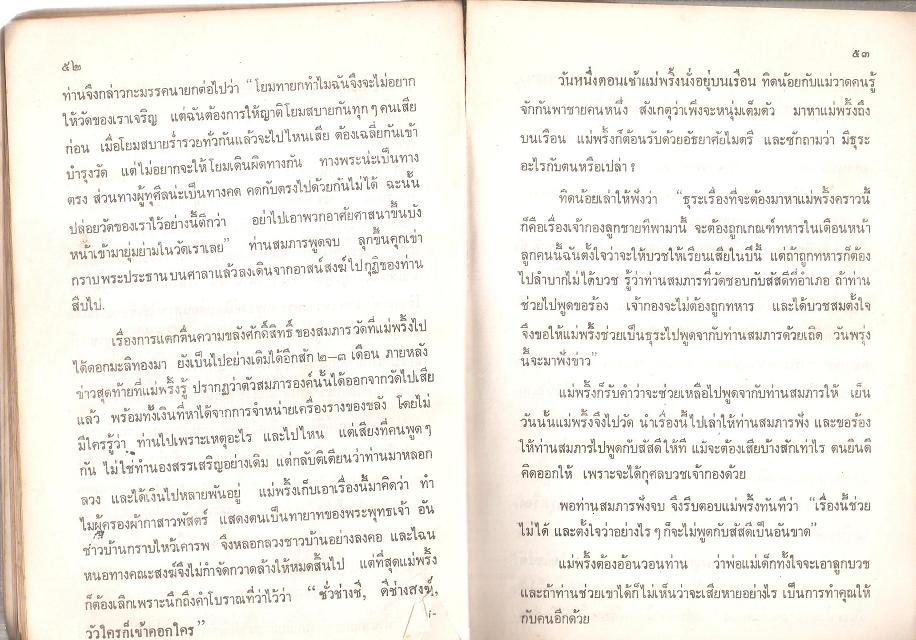 ๕๒
ท่านจึงกล่าวกะมรรคนายกต่อไปว่า “โยมทายกทำไมฉันจึงจะไม่อยาก
ให้วัดของเราเจริญ แต่ฉันต้องการให้ญาติโยมสบายกันทุก ๆ คนเสีย
ก่อน เมื่อโยมสบายร่ำรวยทั่วกันแล้วจะไปไหนเสีย ต้องเฉลี่ยกันเข้า
บำรุงวัด แต่ไม่อยากจะให้โยมเดินผิดทางกัน ทางพระน่ะเป็นทาง
ตรง ส่วนทางผู้ทุศีลน่ะเป็นทางคด คดกับตรงไปด้วยกันไม่ได้ ฉะนั้น
ปล่อยวัดของเราไว้อย่างนี้ดีกว่า อย่าไปเอาพวกอาศัยศาสนาขึ้นบัง
หน้าเข้ามายุ่มย่ามในวัดเราเลย” ท่านสมภารพูดจบ ลุกขึ้นคุกเข่า
กราบพระประธานบนศาลาแล้วลงเดินจากอาสน์สงฆ์ไปกุฏิของท่าน
สืบไป.
เรื่องการแตกตื่นความขลังศักดิ์สิทธิ์ของสมภารวัดที่แม่พริ้งไป
ได้ดอกมะลิทองมา ยังเป็นไปอย่างเดิมได้อีกสัก ๒–๓ เดือน ภายหลัง
ข่าวสุดท้ายที่แม่พริ้งรู้ ปรากฏว่าตัวสมภารองค์นั้นได้ออกจากวัดไปเสีย
แล้ว พร้อมทั้งเงินที่หาได้จากการจำหน่ายเครื่องรางของขลัง โดยไม่
มีใครรู้ว่า ท่านไปเพราะเหตุอะไร และไปไหน แต่เสียงที่คนพูดๆ
กัน ไม่ใช่ทำนองสรรเสริญอย่างเดิม แต่กลับติเตียนว่าท่านมาหลอก
ลวง และได้เงินไปหลายพันอยู่ แม่พริ้งเก็บเอาเรื่องนี้มาคิดว่า ทำ
ไมผู้ครองผ้ากาสาวพัสตร์ แสดงตนเป็นทายาทของพระพุทธเจ้า อัน
ชาวบ้านกราบไหว้เคารพ จึงหลอกลวงชาวบ้านอย่างลงคอ และไฉน
หนอทางคณะสงฆ์จึงไม่กำจัดกวาดล้างให้หมดสิ้นไป แต่ที่สุดแม่พริ้ง
ก็ต้องเลิกเพราะนึกถึงคำโบราณที่ว่าไว้ว่า “ชั่วช่างชี, ดีช่างสงฆ์,
วัวใครก็เข้าคอกใคร”
๕๓
วันหนึ่งตอนเช้าแม่พริ้งนั่งอยู่บนเรือน ทิดน้อยกับแม่วาดคนรู้
จักกันพาชายคนหนึ่ง สังเกตุว่าเพิ่งจะหนุ่มเต็มตัว มาหาแม่พริ้งถึง
บนเรือน แม่พริ้งก็ต้อนรับด้วยอัธยาศัยไมตรี และซักถามว่า มีธุระ
อะไรกับตนหรือเปล่า ?
ทิดน้อยเล่าให้ฟังว่า “ธุระเรื่องที่จะต้องมาหาแม่พริ้งคราวนี้
ก็คือเรื่องเจ้ากองลูกชายที่พามานี้ จะต้องถูกเกณฑ์ทหารในเดือนหน้า
ลูกคนนี้ฉันตั้งใจว่าจะให้บวชให้เรียนเสียในปีนี้ แต่ถ้าถูกทหารก็ต้อง
ไปลำบากไม่ได้บวช รู้ว่าท่านสมภารที่วัดชอบกับสัสดีที่อำเภอ ถ้าท่าน
ช่วยไปพูดขอร้อง เจ้ากองจะไม่ต้องถูกทหาร และได้บวชสมตั้งใจ
จึงขอให้แม่พริ้งช่วยเป็นธุระไปพูดจากับท่านสมภารด้วยเถิด วันพรุ่ง
นี้จะมาฟังข่าว”
แม่พริ้งก็รับคำว่าจะช่วยเหลือไปพูดจากับท่านสมภารให้ เย็น
วันนั้นแม่พริ้งจึงไปวัด นำเรื่องนี้ไปเล่าให้ท่านสมภารฟัง และขอร้อง
ให้ท่านสมภารไปพูดกับสัสดีให้ที แม้จะต้องเสียบ้างสักเท่าไร ตนยินดี
คิดออกให้ เพราะจะได้กุศลบวชเจ้ากองด้วย
พอท่านสมภารฟังจบ จึงรีบตอบแม่พริ้งทันทีว่า “เรื่องนี้ช่วย
ไม่ได้ และตั้งใจว่าอย่างไร ๆ ก็จะไม่พูดกับสัสดีเป็นอันขาด”
แม่พริ้งต้องอ้อนวอนท่าน ว่าพ่อแม่เด็กทั้งใจจะเอาลูกบวช
และถ้าท่านช่วยเขาได้ก็ไม่เห็นว่าจะเสียหายอย่างไร เป็นการทำคุณให้
กับคนอีกด้วย